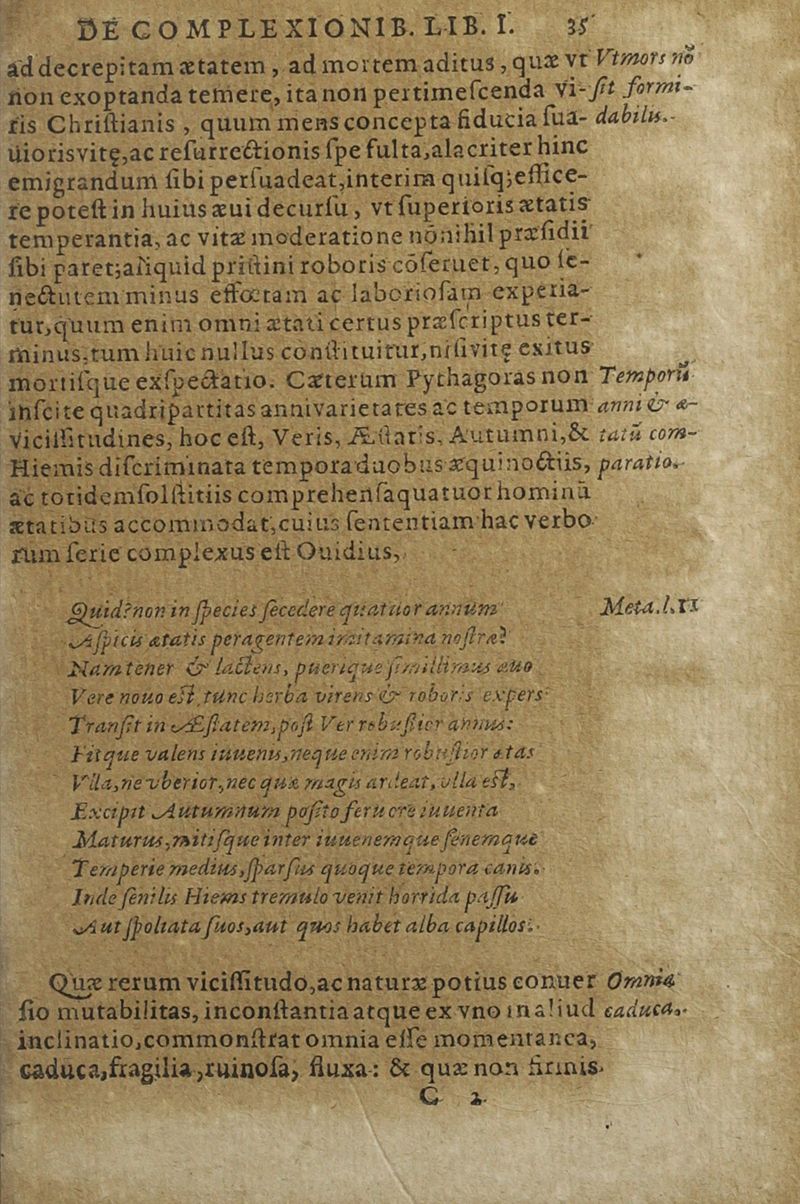 DE COMPLEXIONIB. LIB. I. 35
ad decrepitam ætatem, ad mortem aditus, quæ vt Vt mors nō
non exoptanda temere, ita non pertimeſcenda vi- ſit formi-
ris Chriſtianis, quum mens concepta fiducia ſua- dabilis.
uioris vitę, ac reſurrectionis ſpe fulta, alacriter hinc
emigrandum ſibi perſuadeat, interim quiſq; effice-
re poteſt in huius æui decurſu, vt ſuperioris ætatis
temperantia, ac vitæ moderatione nōnihil præſidii
ſibi paret; aliquid priſtini roboris cōſeruet, quo ſe-
nectutem minus effœtam ac laborioſam experia-
tur, quum enim omni ætati certus præſcriptus ter-
minus, tum huic nullus conſtituitur, niſi vitę exitus
mortiſque exſpectatio. Cæterum Pythagoras non Temporū
inſcite quadripartitas anni varietates ac temporum anni & æ-
viciſſitudines, hoc eſt, Veris, Æſtatis, Autumni, & tatū com-
Hiemis diſcriminata tempora duobus æquinoctiis, paratio.
ac totidem ſolſtitiis comprehenſa quatuor hominū
ætatibus accommodat, cuius ſententiam hac verbo
rum ſerie complexus eſt Ouidius,
Quid? non in ſpecies ſecedere quatuor annum Meta. l. 15
Aſpicis ætatis peragentem imitamina noſtræ?
Nam tener & lactens, puerique ſimillimus æuo
Vere nouo eſt, tunc herba virens & roboris expers
Tranſit in Æſtatem, poſt Ver robuſtior annus:
Fitque valens iuuenis, neque enim robuſtior ætas
Vlla, ne vberior, nec quæ magis ardeat, vlla eſt,
Excipit Autumnum poſito feruore iuuenta
Maturus, mitiſque inter iuuenemque ſenemque
Temperie medius, ſparſus quoque tempora canis.
Inde ſenilis Hiems tremulo venit horrida paſſu
Aut ſpoliata ſuos, aut quos habet alba capillos.
Quæ rerum viciſſitudo, ac naturæ potius conuer Omnia
ſio mutabilitas, inconſtantia atque ex vno in aliud caduca.
inclinatio, commonſtrat omnia eſſe momentanea,
caduca, fragilia, ruinoſa, fluxa: & quæ non firmis
C 2